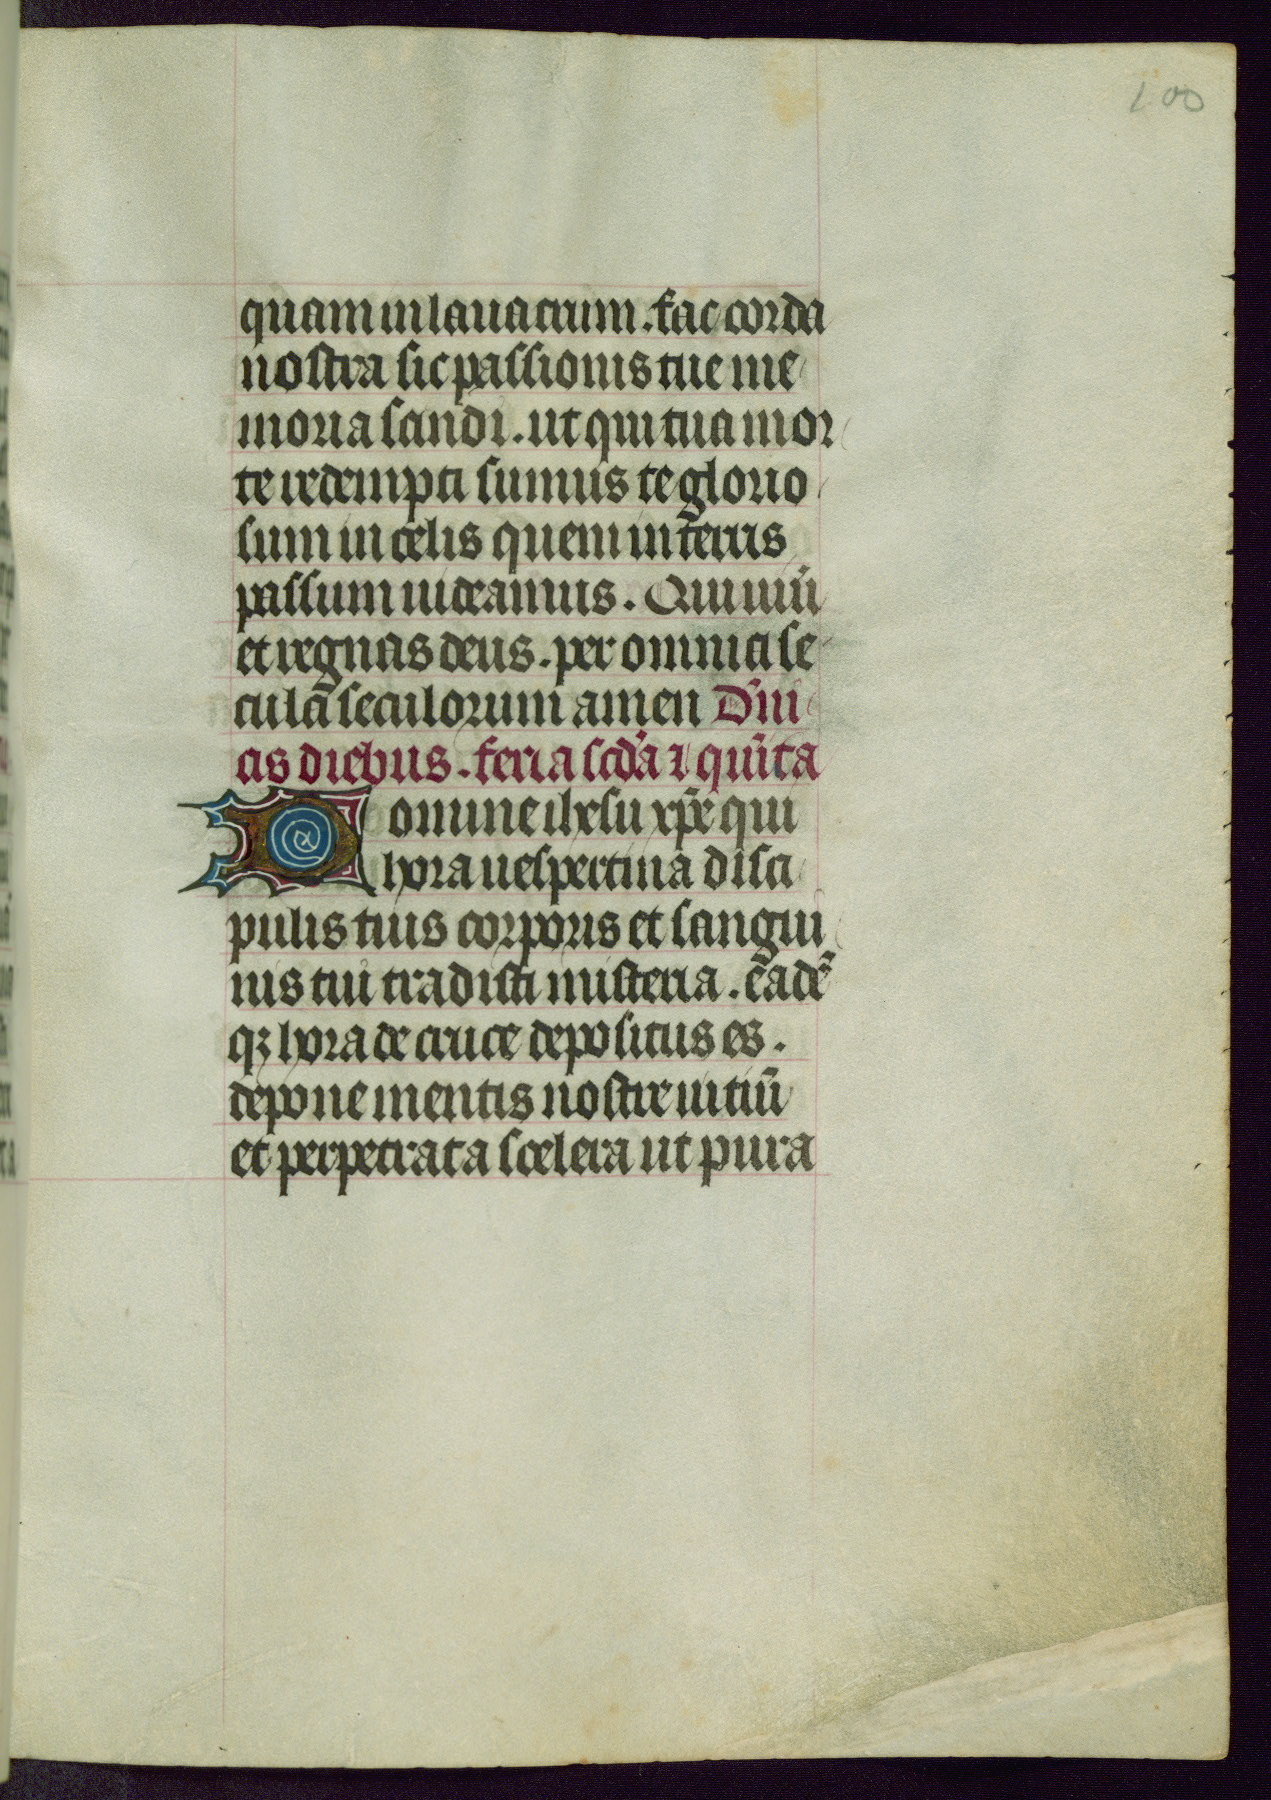 100
quam in lauacrum. fac corda
nostra sic passionis tue me
moria sanari. ut qui tua mor
te redempti sumus te glorio
sum in celis quem in terris
passum uideamus. Qui uiuis
et regnas deus. per omnia se
cula seculorum amen Dñi
cis diebus. feria scda ⁊ quīta
Domine ihesu xp̄e qui
hora uespertina disci
pulis tuis corporis et sangui
nis tui tradisti misteria. eadē
qꝫ hora de cruce depositus es.
depone mentis nostre uitiū
et perpetrata scelera ut pura